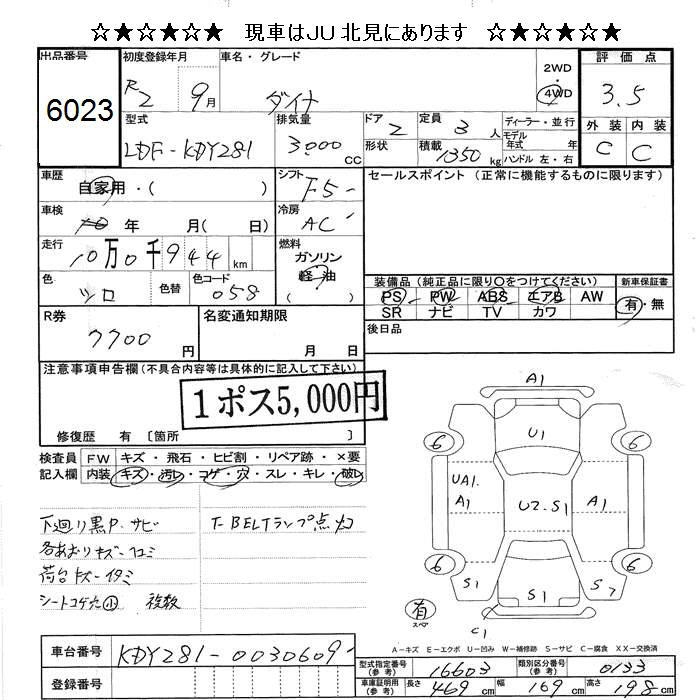 ☆★☆★☆★ 現車はJU北見にあります ☆★☆★☆★
出品番号
6023
初度登録年月
R2 9月
車名・グレード
ダイナ
2WD
4WD
評価点
3.5
外装 内装
C C
型式
LDF-KDY281
排気量
3000 CC
ドア 2
形状
定員 3人
積載 1350 kg
ディーラー・並行
モデル年式 年
ハンドル 左・右
車歴
自家用・( )
シフト
F5
セールスポイント (正常に機能するものに限ります)
車検
年 月( 日)
冷房
AC
走行
10万0千944 km
燃料
ガソリン
軽油
( )
色
ツロ
色替
色コード
058
装備品 (純正品に限り○をつけてください)
PS PW ABS エアB AW
SR ナビ TV カワ
新車保証書
有・無
R券
7700 円
名変通知期限
月 日
後日品
注意事項申告欄 (不具合内容等は具体的に記入して下さい)
1ポス5,000円
修復歴 有 〔箇所 〕
検査員
記入欄
FW キズ・飛石・ヒビ割・リペア跡・×要
内装 キズ・汚レ・コゲ・穴・スレ・キレ・破レ
下廻り黒P・サビ
T-BELTランプ点灯
各あおりキズ-凹ミ
荷台キズ-イタミ
シートコゲ穴 小 複数
A1
6 U1 6
UA1.
A1 U2.S1 A1
6 6
S1 S1 S7
有
スペア
C1
A-キズ E-エクボ U-凹み W-補修跡 S-サビ C-腐食 XX-交換済
車台番号
KDY281-0030609
登録番号
型式指定番号(参考) 16603
類別区分番号(参考) 0133
車庫証明用(参考) 長さ 469 cm 幅 169 cm 高さ 198 cm